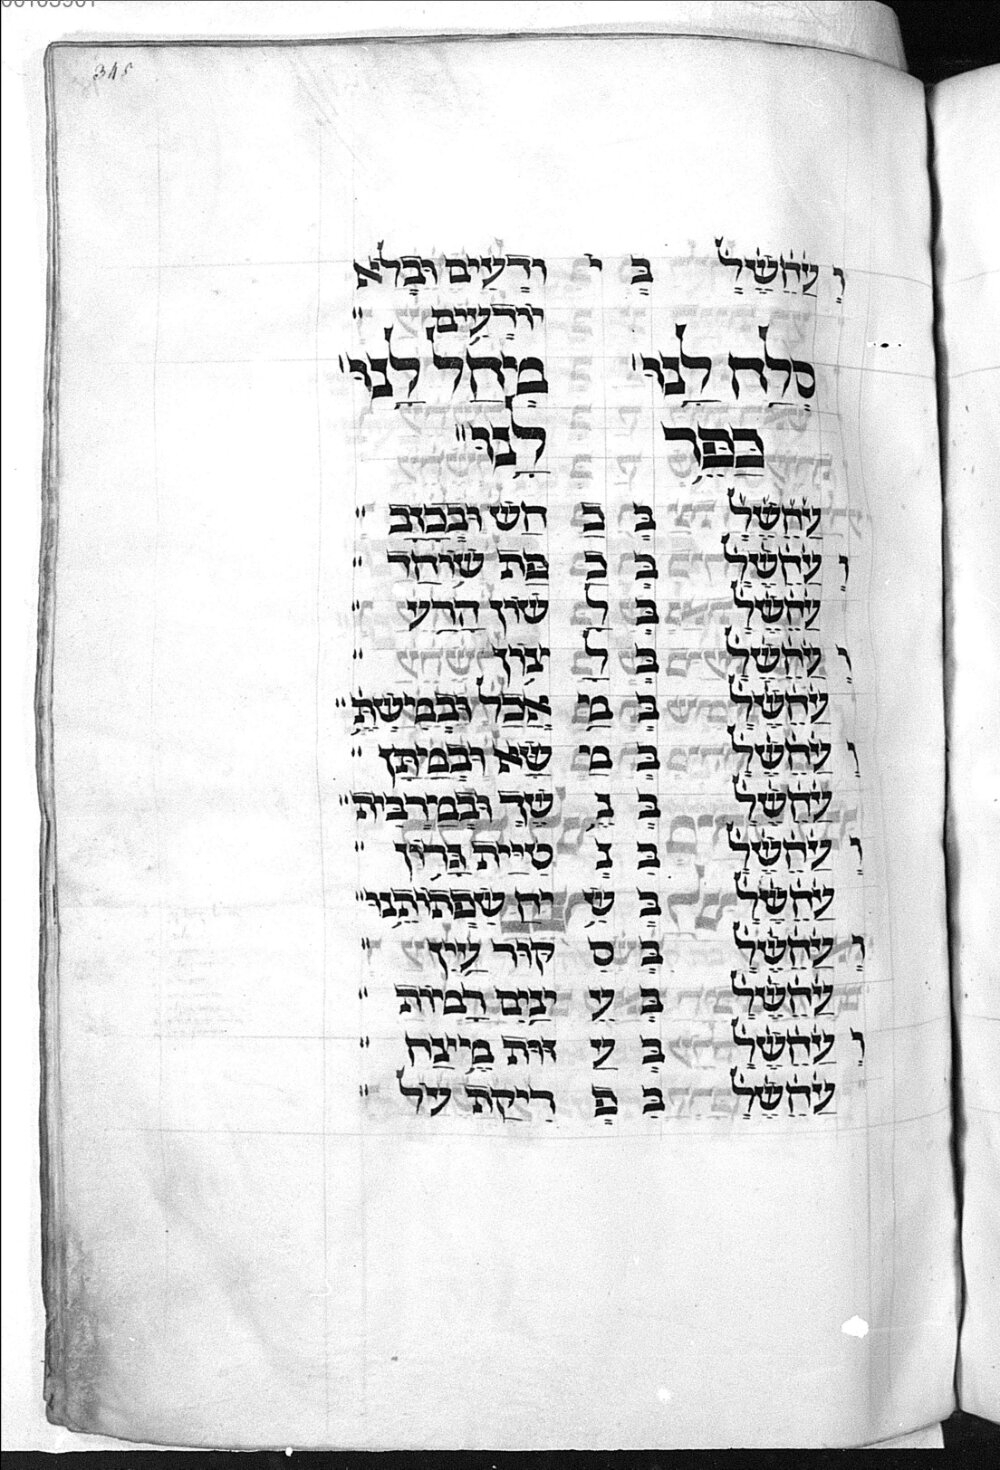 345
וְ עֹחֹשֹלֹ בְּ י ודָעִים וּבְלֹא
יוֹדְעִים
סְלַח לָנוּ מְחַל לָנוּ
כַּפֶּר לָנוּ
עחשל בְּ כַ חַשׁ וּבְכָזָב
וְ עחשל בְּ כַ פַּת שׁוֹחַד
עחשל בְּ לְ שׁוֹן הרע
וְ עחשל בְּ לָ יצוֹן
עחשל בְּ מַ אֲכָל וּבְמִשְׁתֶּ
וְ עחשל בְּ מַ שָּׂא וּבְמַתָּן
עחשל בְּ נֶ שֶׁךְ וּבְמַרְבִּית
וְ עחשל בִּ נְ טיית גָּרוֹן
עחשל בְּ שִׂ יחַ שִׂפְתוֹתֵנוּ
וְ עחשל בְּ סִ קּוּר עַיִן
עחשל בְּ עֵ ינַיִם רָמוֹת
וְ עחשל בְּ עַ זּוּת מֵיצַח
עחשל בִּ פְ רִיקַת עֹל